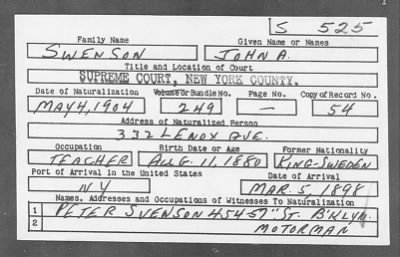 S 525
Family Name Given Name or Names
SWENSON JOHN A.
Title and Location of Court
SUPREME COURT, NEW YORK COUNTY.
Date of Naturalization Volume or Bundle No. Page No. Copy of Record No.
MAY 4, 1904 249 — 54
Address of Naturalized Person
332 LENOX AVE.
Occupation Birth Date or Age Former Nationality
TEACHER AUG. 11, 1880 KING-SWEDEN
Port of Arrival in the United States Date of Arrival
NY MAR. 5, 1898
Names, Addresses and Occupations of Witnesses To Naturalization
1 PETER SVENSON 454-57" ST. B'KLYN.
2 MOTORMAN